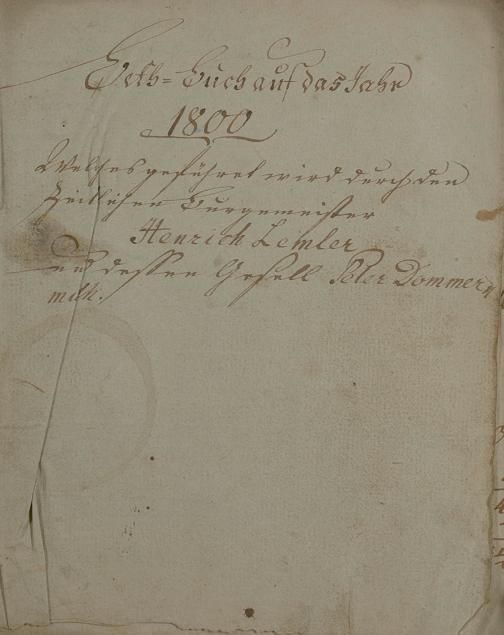 Beth=Buch auf das Jahr
1800
Welches geführet wird durch den
Zeitlichen Burgemeister
Henrich Lemler
und dessen Gesell Peter Dommer